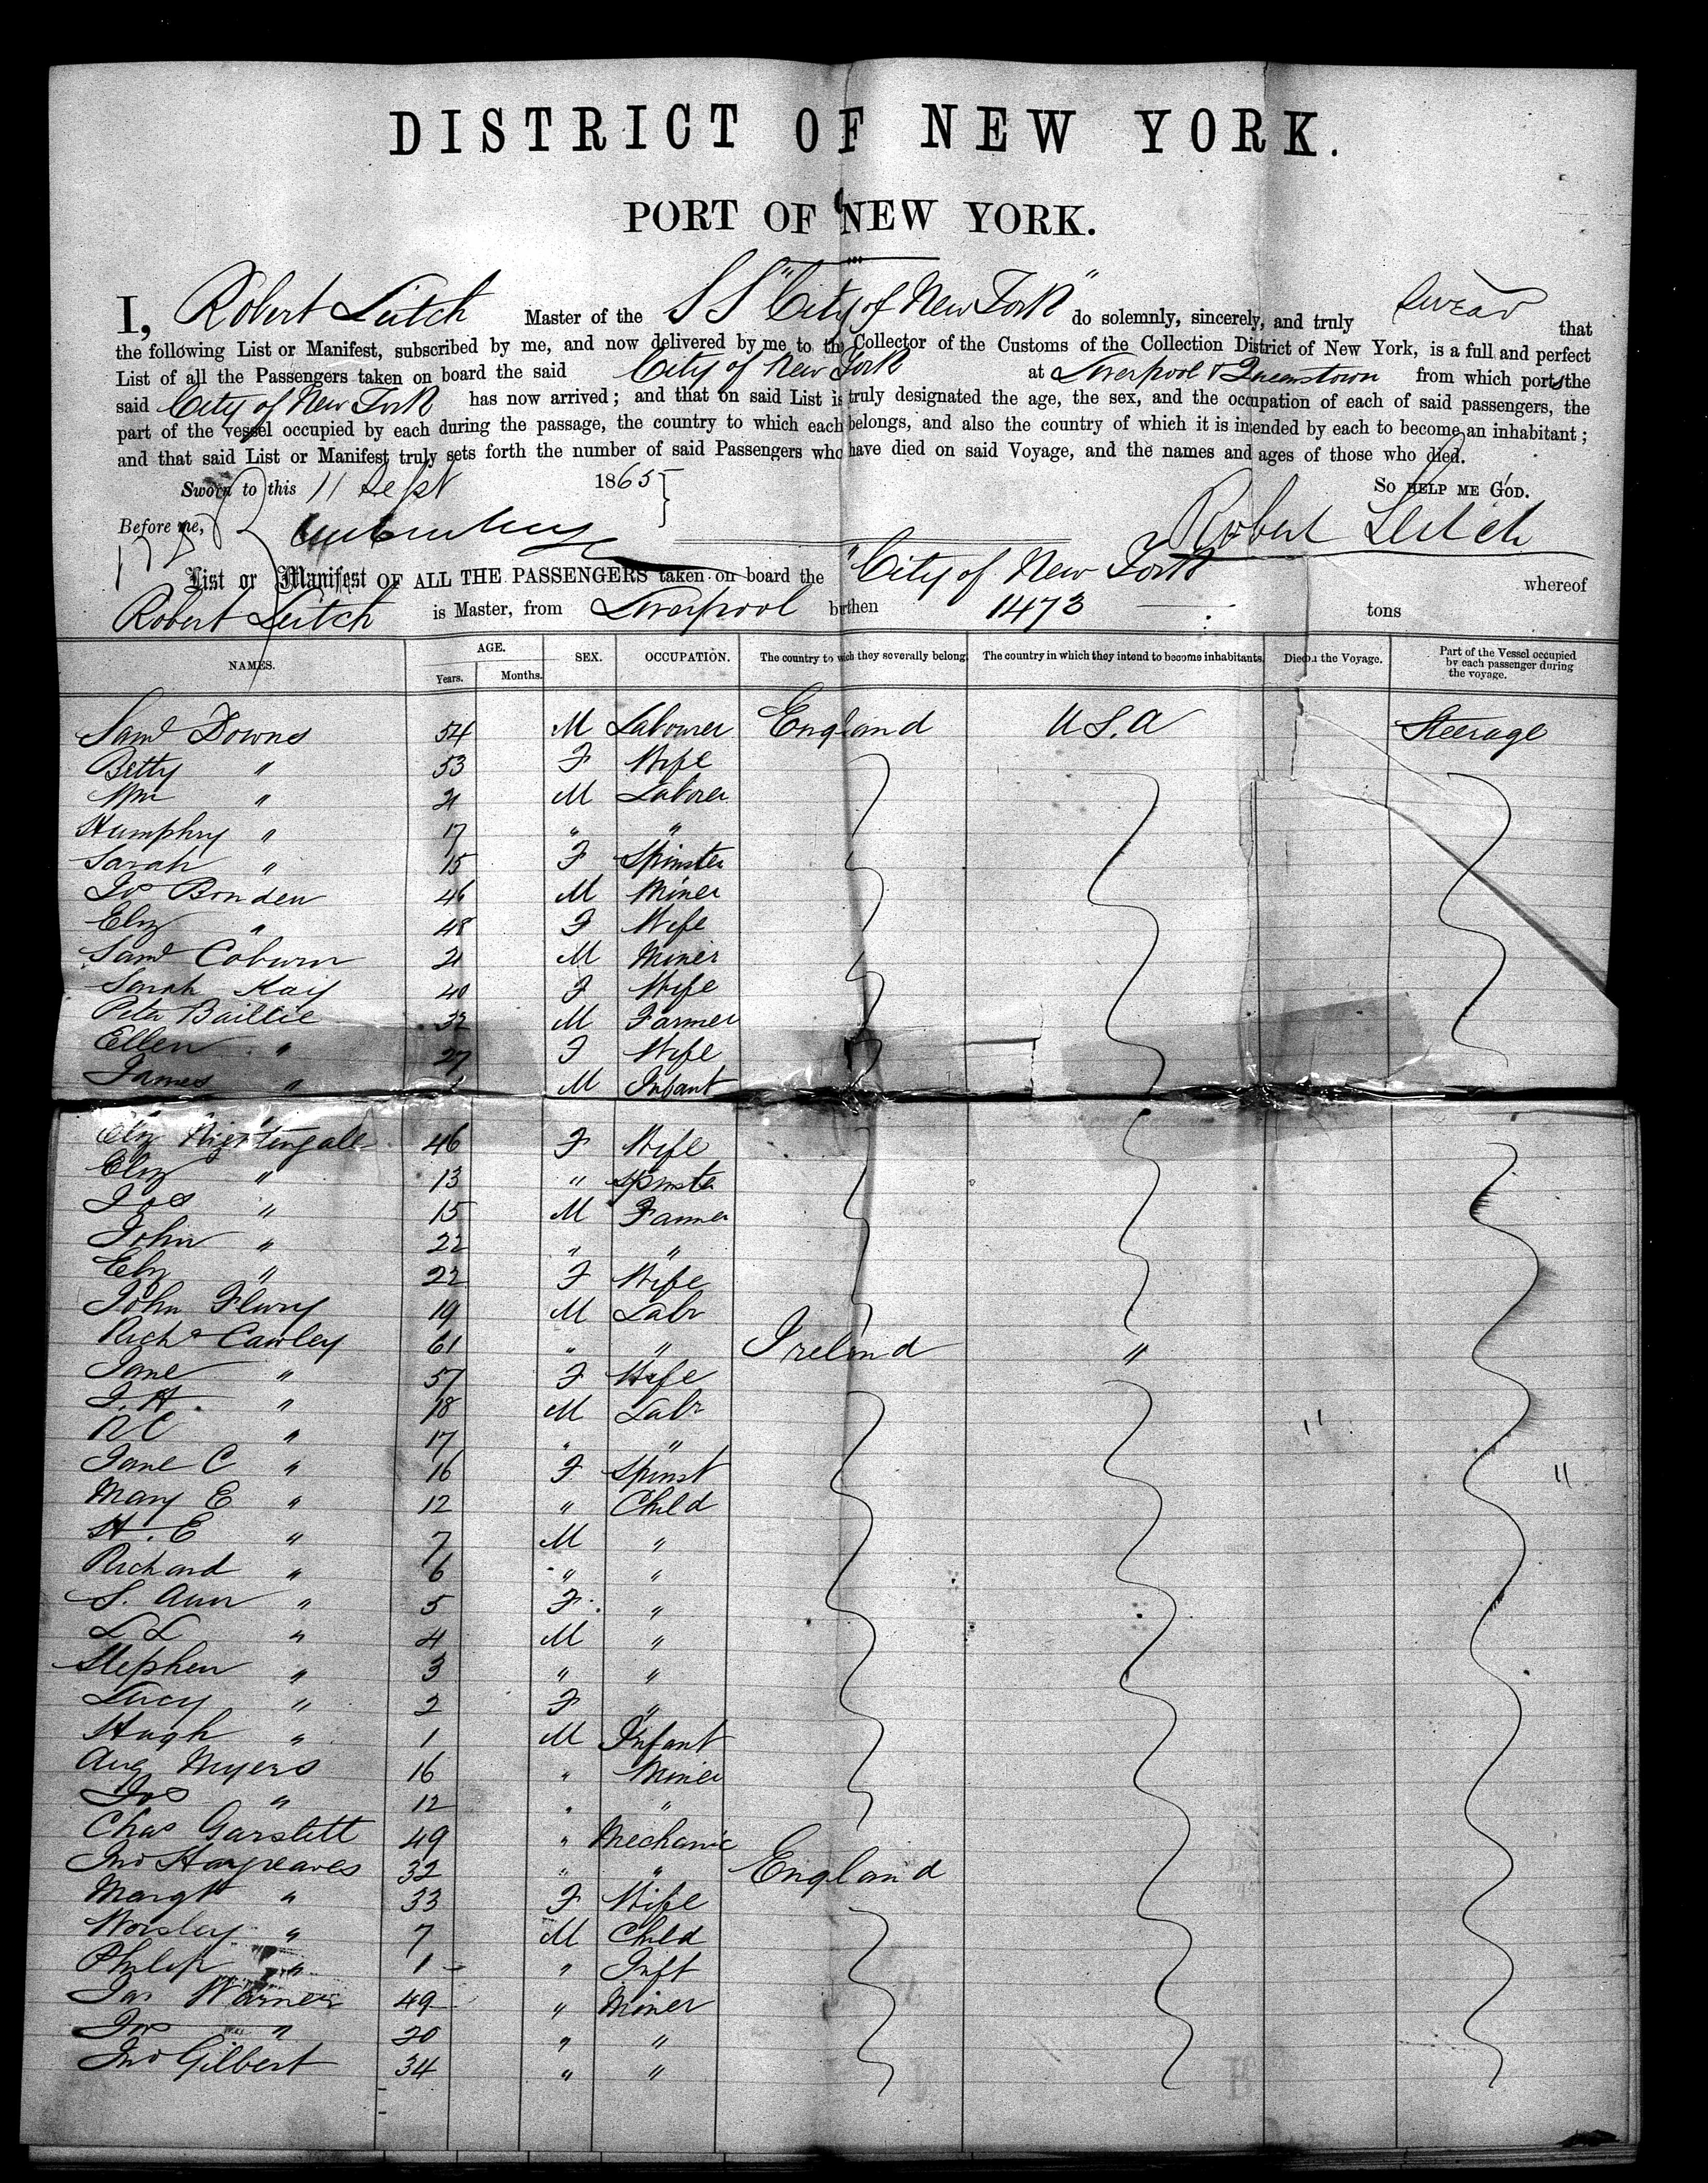 DISTRICT OF NEW YORK.
PORT OF NEW YORK.
I, Robert Leitch Master of the SS "City of New York" do solemnly, sincerely, and truly swear that
the following List or Manifest, subscribed by me, and now delivered by me to the Collector of the Customs of the Collection District of New York, is a full and perfect
List of all the Passengers taken on board the said City of New York at Liverpool & Queenstown from which ports the
said City of New York has now arrived; and that on said List is truly designated the age, the sex, and the occupation of each of said passengers, the
part of the vessel occupied by each during the passage, the country to which each belongs, and also the country of which it is intended by each to become an inhabitant;
and that said List or Manifest truly sets forth the number of said Passengers who have died on said Voyage, and the names and ages of those who died.
Sworn to this 11 Sept 1865 So HELP ME GOD.
Before me, Robert Leitch
List or Manifest OF ALL THE PASSENGERS taken on board the "City of New York whereof
Robert Leitch is Master, from Liverpool birthen 1473 tons
NAMES. AGE. Years. Months. SEX. OCCUPATION. The country to which they severally belong. The country in which they intend to become inhabitants. Died on the Voyage. Part of the Vessel occupied by each passenger during the voyage.
Saml Downs 54 M Labourer England U S. A Steerage
Betty " 53 F Wife
Wm " 21 M Laborer
Humphry " 17 " "
Sarah " 15 F Spinster
Jos Bonden 46 M Miner
Eliz " 48 F Wife
Saml Coburn 21 M Miner
Sarah Kay 40 F Wife
Peter Baillie 32 M Farmer
Ellen " 27 F Wife
James " M Infant
Eliz Nightingale 46 F Wife
Eliz " 13 " Spinster
Jos " 15 M Farmer
John " 22 " "
Eliz " 22 F Wife
John Flury 19 M Labr
Richd Cawley 61 " " Ireland "
Jane " 57 F Wife
J. H. " 18 M Labr "
" 17 " "
Jane C " 16 F Spinst "
Mary E " 12 " Child
H. E " 7 M "
Richard " 6 " "
S. Ann " 5 F "
L L " 4 M "
Stephen " 3 " "
Lucy " 2 F "
Hugh " 1 M Infant
Aug Myers 16 " Miner
Jos " 12 " "
Chas Garstett 49 " Mechanic
Jno Hargreaves 32 " " England
Margt " 33 F Wife
Worsley " 7 M Child
Philip " 1 " Inft
Jas Warner 49 " Miner
Jos " 20 " "
Jno Gilbert 34 " "